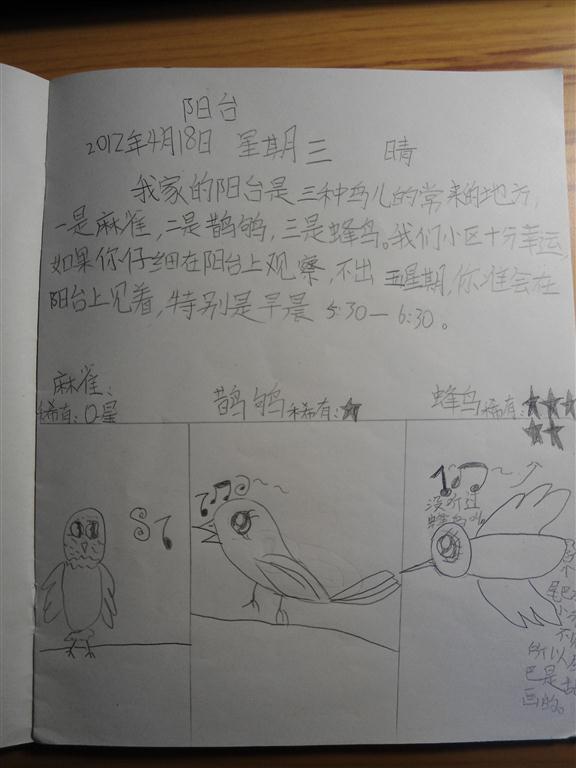 阳台
2012年4月18日 星期三 晴
我家的阳台是三种鸟儿的常来的地方,
一是麻雀,二是鹊鸲,三是蜂鸟。我们小区十分幸运,
如果你仔细在阳台上观察,不出五星期,你准会在
阳台上见着,特别是早晨 5:30—6:30。
麻雀:
稀有:0星
鹊鸲 稀有:★
蜂鸟 稀有:★★★
★★
没听过
蜂鸟叫
个
尾巴
小
所以
巴是
画的。